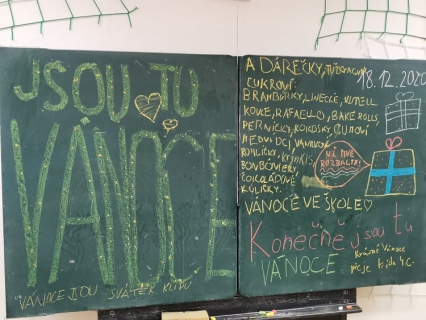 JSOU TU
VÁNOCE
VÁNOCE JSOU SVÁTEK KLIDU
18.12.2020
A DÁREČKY,
CUKROVÍ:
BRAMBŮRKY, LINECKÉ, NUTELL
KOULE, RAFAELLO, BAKE ROLLS
PERNÍČKY, KOKOSKY, GUMOVÍ
MEDVÍDCI, VANILKOVÉ
ROHLÍČKY,
BONBONIERY,
ČOKOLÁDOVÉ
KULIČKY.
UŽ MNĚ
ROZBALTE!
VÁNOCE VE ŠKOLE
Konečně jsou tu
VÁNOCE
Krásné Vánoce
přeje třída 4.C.